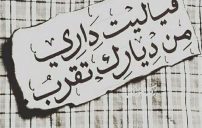 فياليت داري
من ديارك تقرب